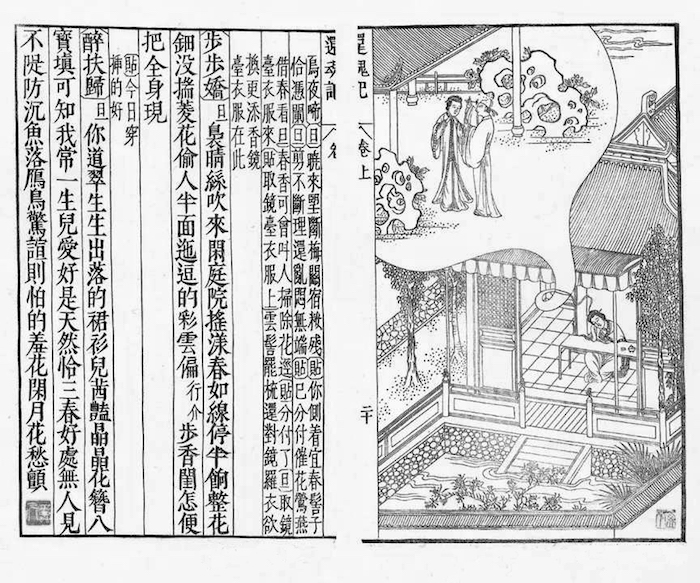 還魂記
卷上
二十
還魂記
烏夜啼旦曉來望斷梅關宿粧殘貼你側着宜春髻子
恰憑闌旦剪不斷理還亂悶無端貼已分付催花鶯燕
借春看旦春香可曾叫人掃除花逕貼分付了旦取鏡
臺衣服來貼取鏡臺衣服上雲髻罷梳還對鏡羅衣欲
換更添香鏡
臺衣服在此
步步嬌旦裊晴絲吹來閑庭院搖漾春如線停半餉整花
鈿没揣菱花偷人半面迤逗的彩雲偏行介步香閨怎便
把全身現
貼今日穿
插的好
醉扶歸旦你道翠生生出落的裙衫兒茜豔晶晶花簪八
寶填可知我常一生兒愛好是天然恰三春好處無人見
不隄防沉魚落鴈鳥驚諠則怕的羞花閉月花愁顫